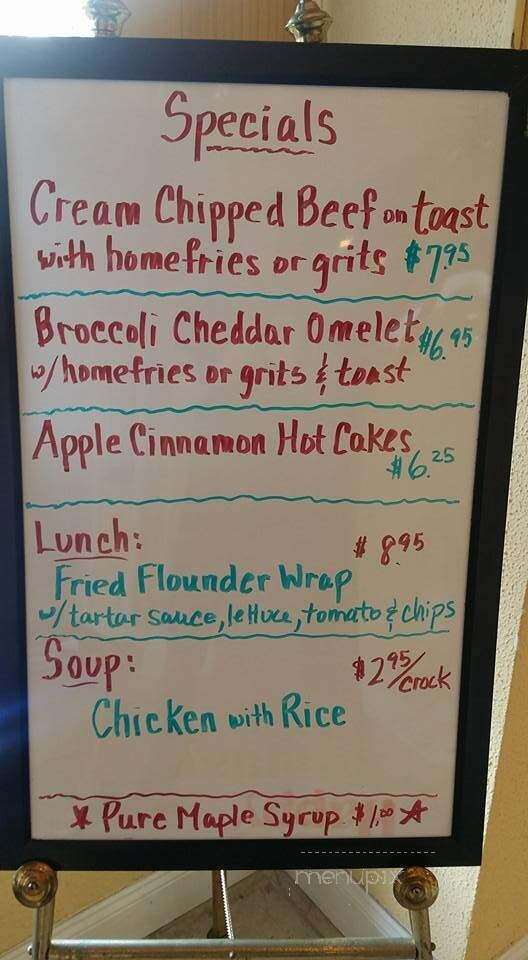 Specials
Cream Chipped Beef on toast
with homefries or grits $7.95
Broccoli Cheddar Omelet $6.95
w/homefries or grits & toast
Apple Cinnamon Hot Cakes
$6.25
Lunch: $8.95
Fried Flounder Wrap
w/tartar sauce, lettuce, tomato & chips
Soup: $2.95/crock
Chicken with Rice
* Pure Maple Syrup $1.00 ☆
menupix